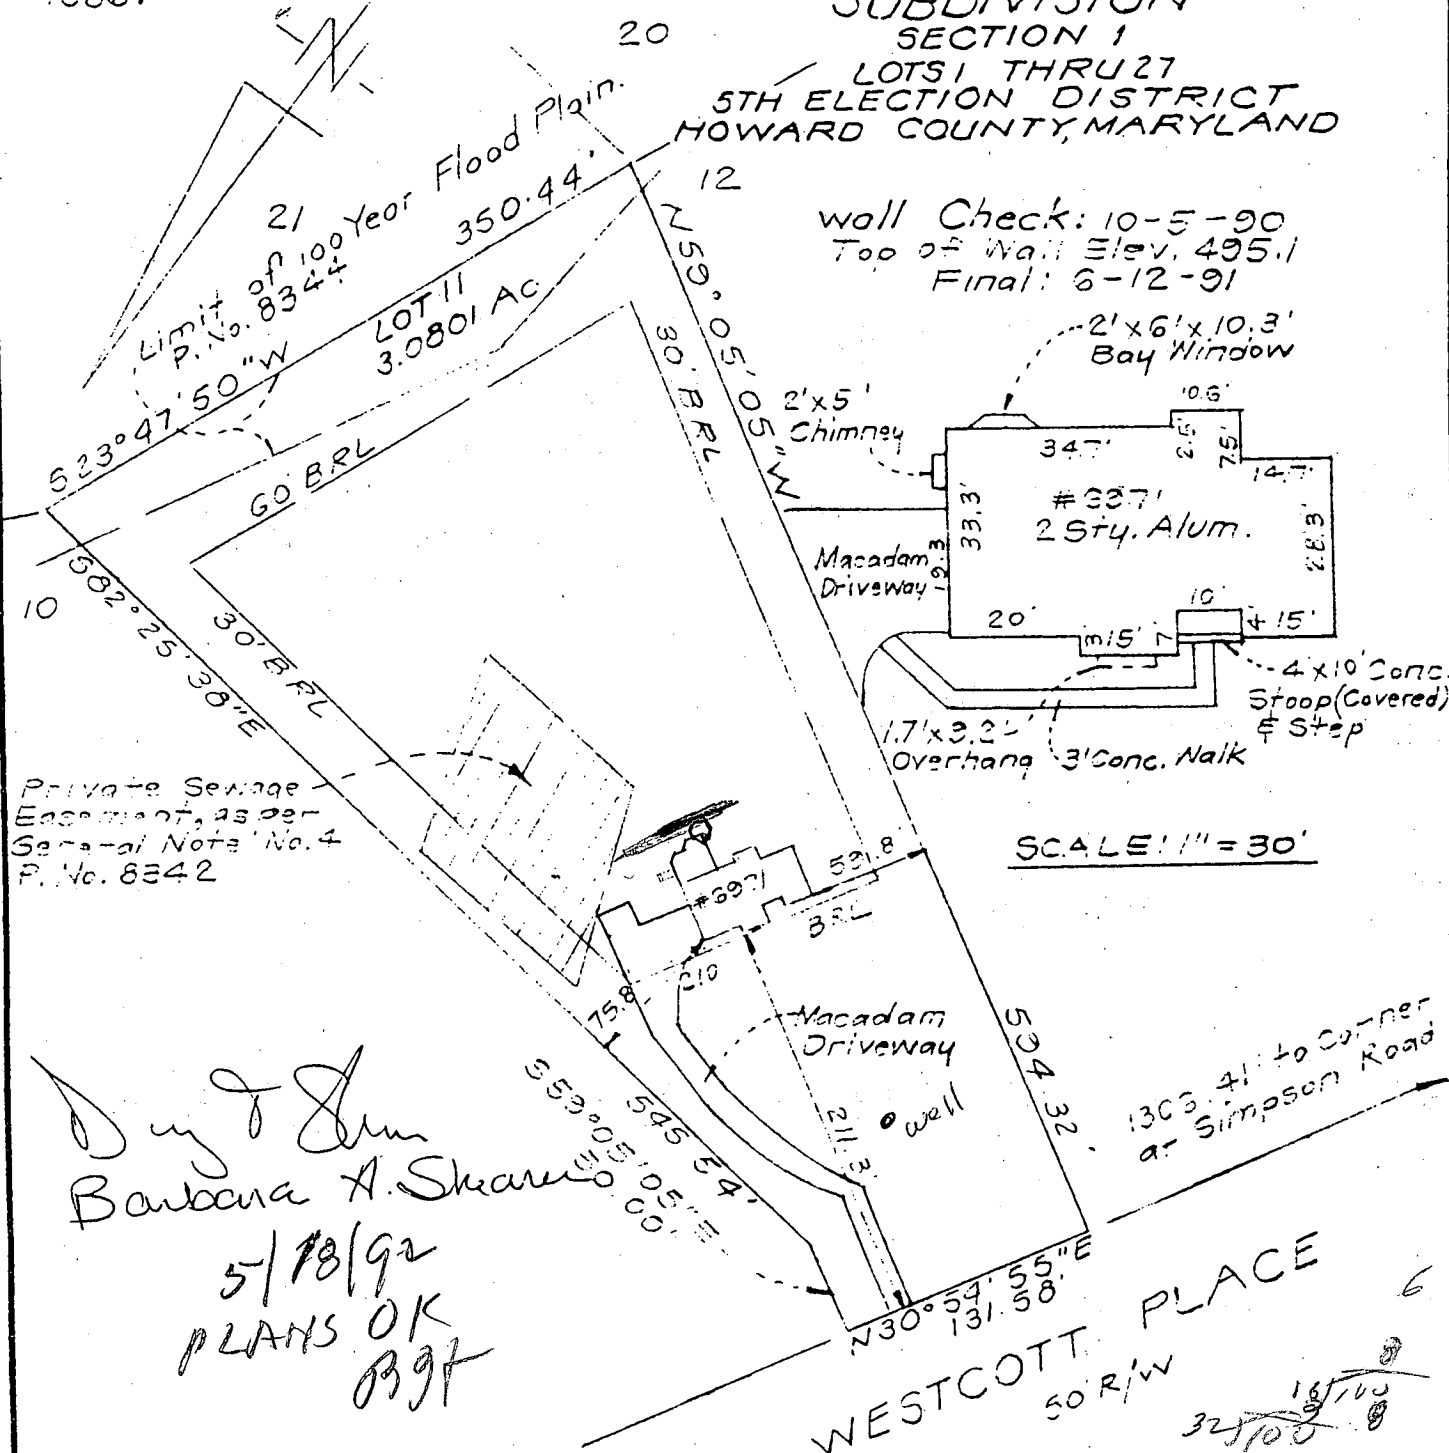 SUBDIVISION
SECTION 1
LOTS 1 THRU 27
5TH ELECTION DISTRICT
HOWARD COUNTY, MARYLAND
20
12
21
10
Limit of 100 Year Flood Plain.
P. No. 8344
350.44'
S23°47'50"W
LOT 11
3.0801 Ac.
N59°05'05"W
594.32'
30' BRL
60' BRL
S82°25'38"E
545.54'
30' BRL
wall Check: 10-5-90
Top of Wall Elev. 495.1
Final: 6-12-91
2'x6'x10.3'
Bay Window
2'x5'
Chimney
10.6'
34.7'
2.5'
7.5'
14.7'
33.3'
2 Sty. Alum.
28.3'
Macadam
Driveway
20'
3
15'
7
10'
4
15'
4'x10' Conc.
Stoop (Covered)
& Step
Overhang
3' Conc. Walk
SCALE: 1" = 30'
Private Sewage
Easement, as per
General Note No. 4
P. No. 8342
BRL
75.8
Macadam
Driveway
211.3
well
S59°05'05"E
to Corner
at Simpson Road
N30°54'55"E
131.58'
WESTCOTT PLACE
50' R/W
Barbara A.
5/18/92
PLANS OK
6